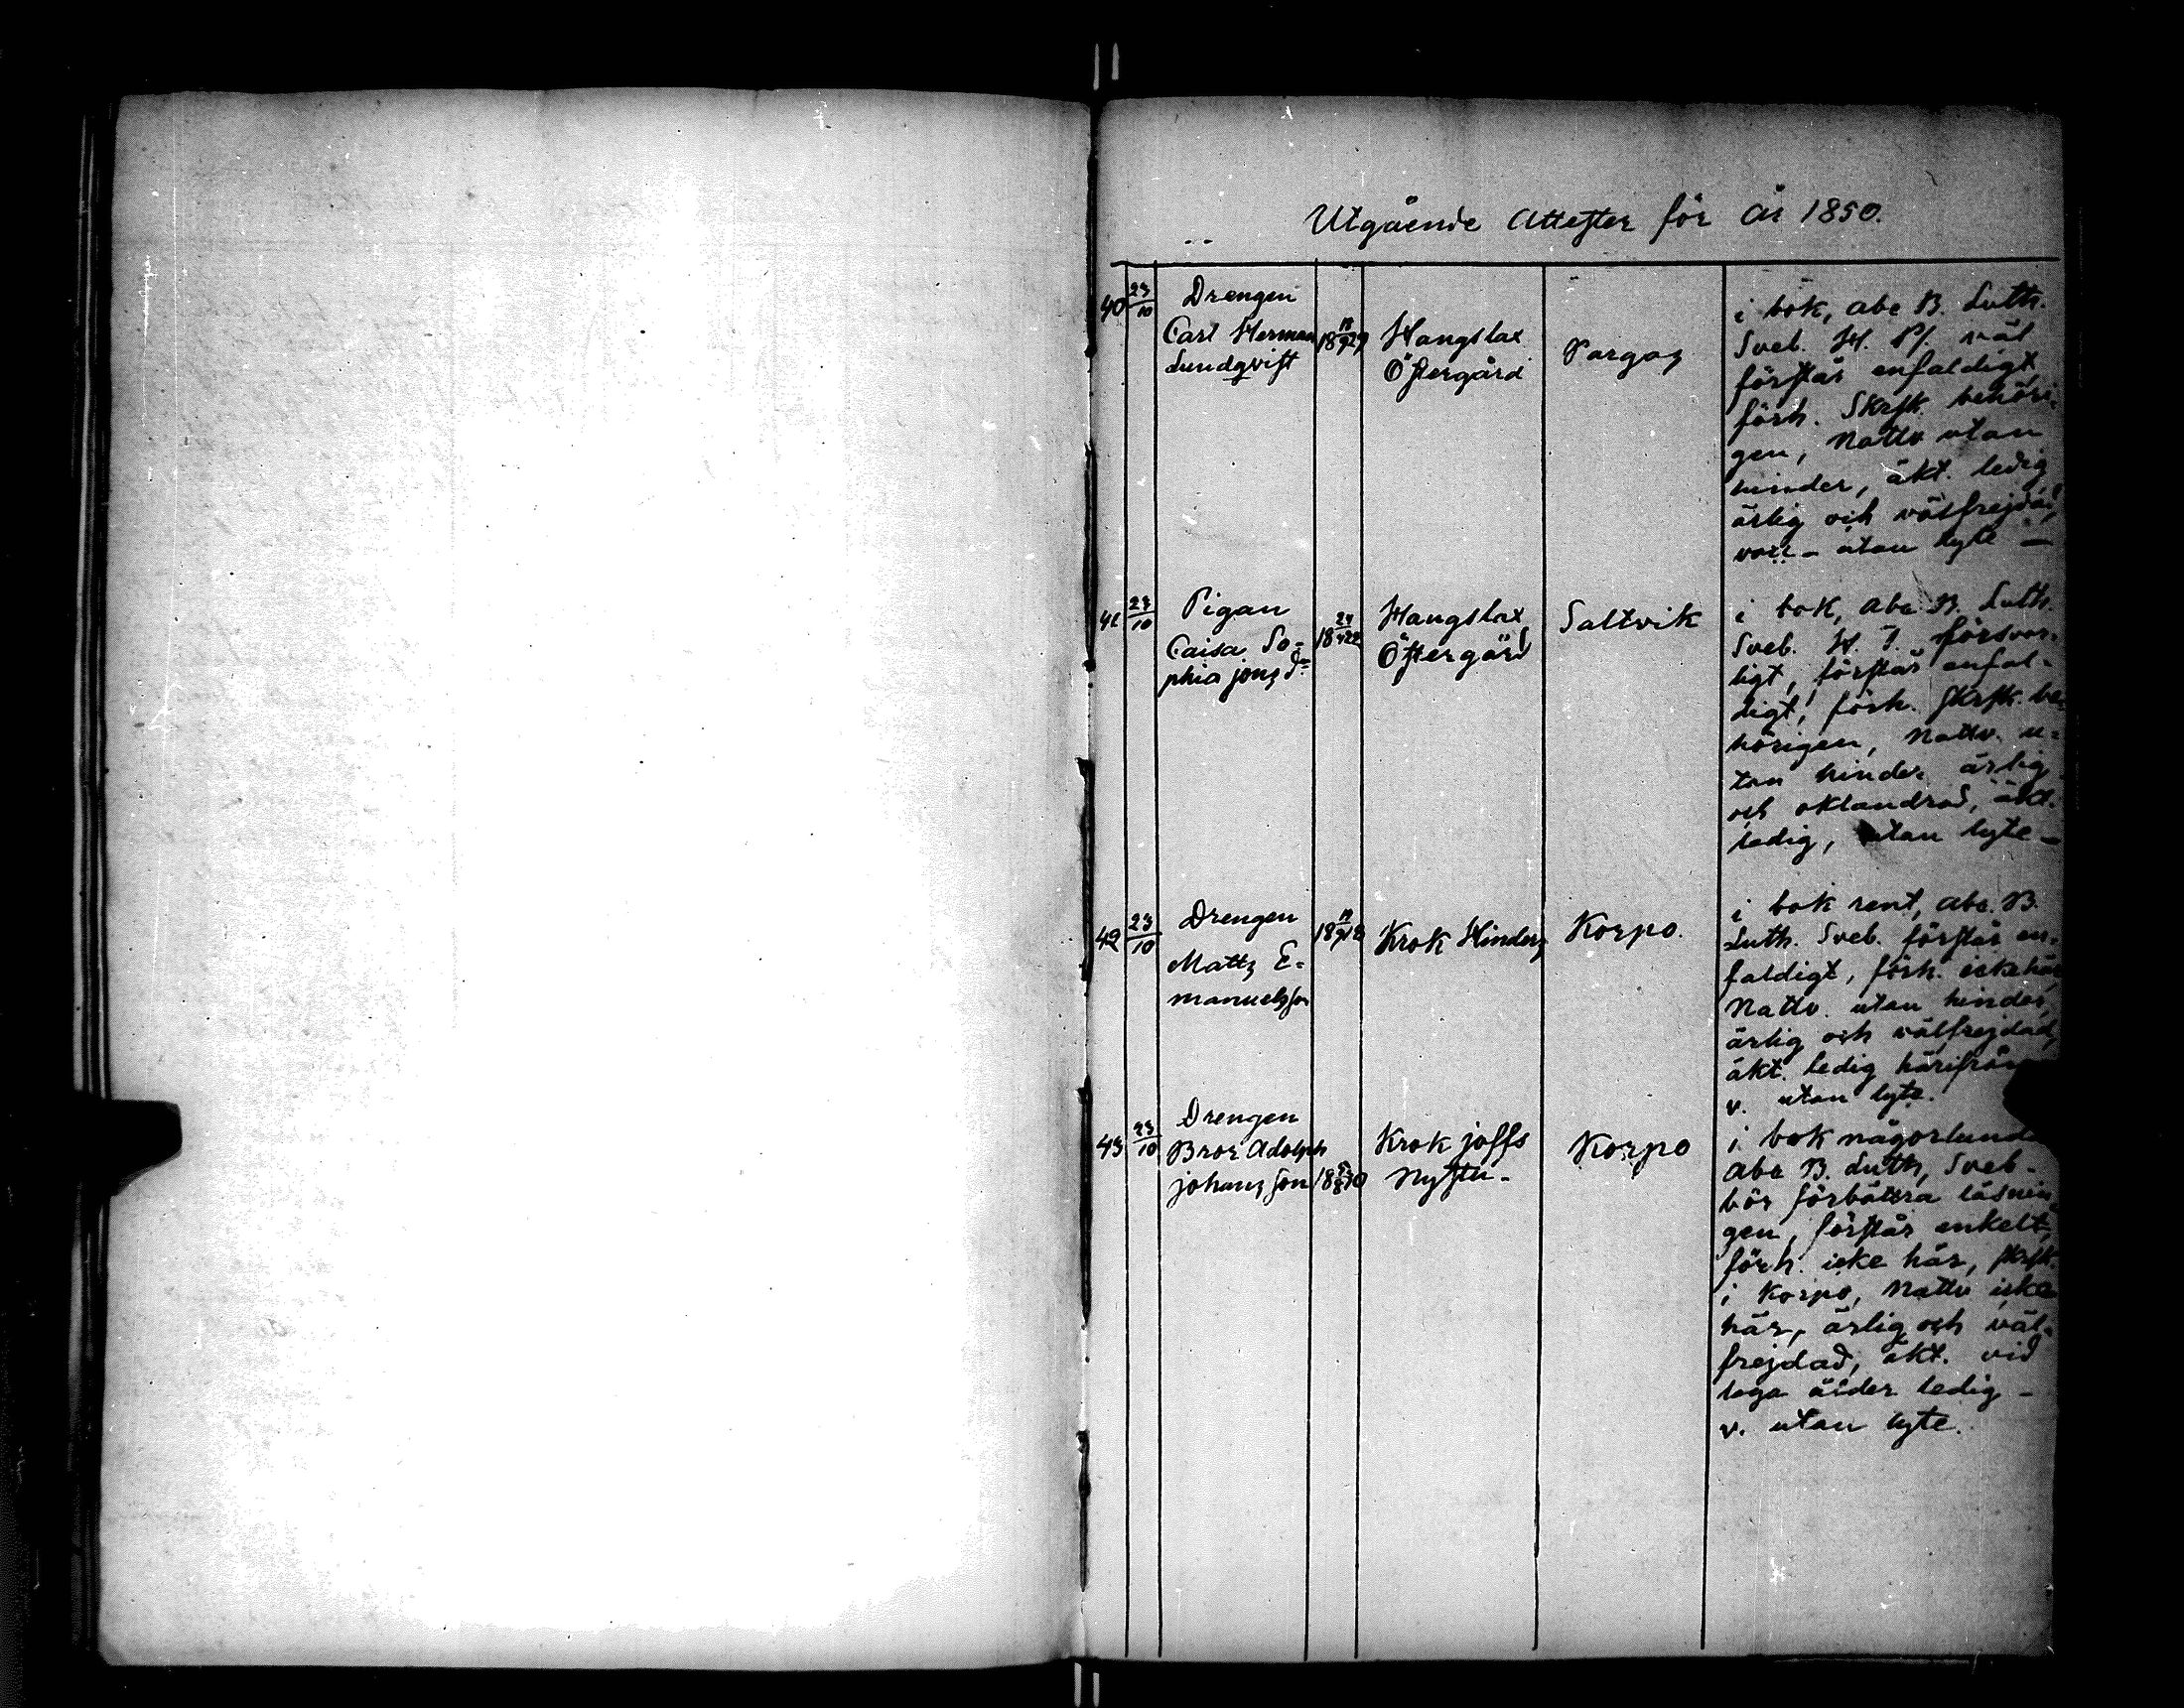 Utgående Attester för År 1850.
40 23/10 Drengen
Carl Herman
Lundqvist
Hangslax
Östergård
Pargas
i bok, abc B. Luth.
Sveb. H. Pf. väl
förstår enfaldigt
förh. Skrft. behöri-
gen, Nattv utan
hinder, äkt. ledig
ärlig och välfrejdad
vacc - utan lyte -
41 23/10 Pigan
Caisa So-
phia jons Dr
Hangslax
Östergård
Saltvik
i bok, abc B. Luth.
Sveb. H. T. försvar-
ligt, förstår enfal-
digt, förh. skrft. be-
hörigen, Nattv. u-
tan hinder ärlig
och oklandrad, äkt.
ledig, utan lyte -
42 23/10 Drengen
Matts E-
manuelsson
Krok Hinders
Korpo.
i bok rent, abc. B.
Luth. Sveb. förstår en-
faldigt, förh. icke här
Nattv. utan hinder,
ärlig och välfrejdad,
äkt. ledig härifrån
v. utan lyte.
43 23/10 Drengen
Bror Adolph
johans son
Krok joffs
Nystu -
Korpo
i bok någorlunda
abc B. Luth, Sveb -
bör förbättra läsnin
gen, förstår enkelt,
förh. icke här, skrft.
i Korpo, Nattv icke
här, ärlig och väl-
frejdad, äkt. vid
laga ålder ledig -
v. utan lyte.